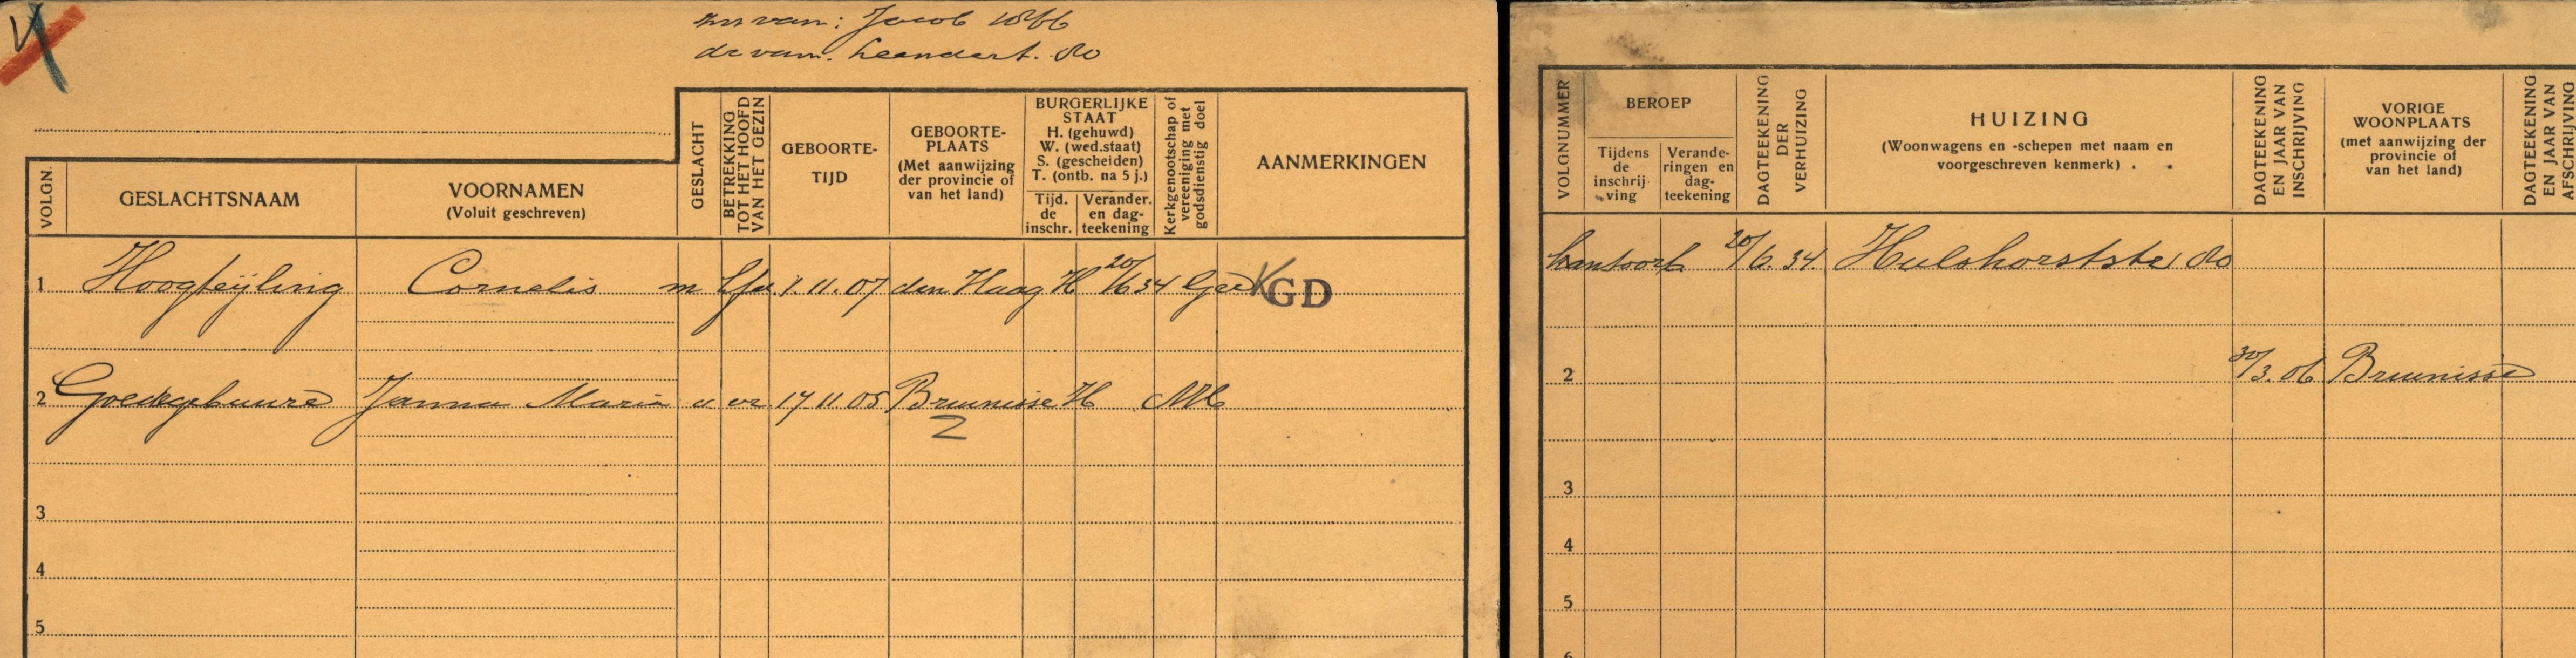 zn van: Jacob 1866
dr van. Leendert. 80
VOLGN.
GESLACHTSNAAM
VOORNAMEN
(Voluit geschreven)
GESLACHT
BETREKKING
TOT HET HOOFD
VAN HET GEZIN
GEBOORTE-
TIJD
GEBOORTE-
PLAATS
(Met aanwijzing
der provincie of
van het land)
BURGERLIJKE
STAAT
H. (gehuwd)
W. (wed.staat)
S. (gescheiden)
T. (ontb. na 5 j.)
Tijd.
de
inschr.
Verander.
en dag-
teekening
Kerkgenootschap of
vereeniging met
godsdienstig doel
AANMERKINGEN
1 Hoogteijling Cornelis m Hfd 1.11.07 den Haag H 20/6 34 Ger GD
2 Goedegebuure Janna Maria v vr 17 11 05 Bruinisse H NH
Z
3
4
5
VOLGNUMMER
BEROEP
Tijdens
de
inschrij-
ving
Verande-
ringen en
dag-
teekening
DAGTEEKENING
DER
VERHUIZING
HUIZING
(Woonwagens en -schepen met naam en
voorgeschreven kenmerk)
DAGTEEKENING
EN JAAR VAN
INSCHRIJVING
VORIGE
WOONPLAATS
(met aanwijzing der
provincie of
van het land)
DAGTEEKENING
EN JAAR VAN
AFSCHRIJVING
20/6.34. Hulshorststr 80
2 30/3.06 Bruinisse
3
4
5
6